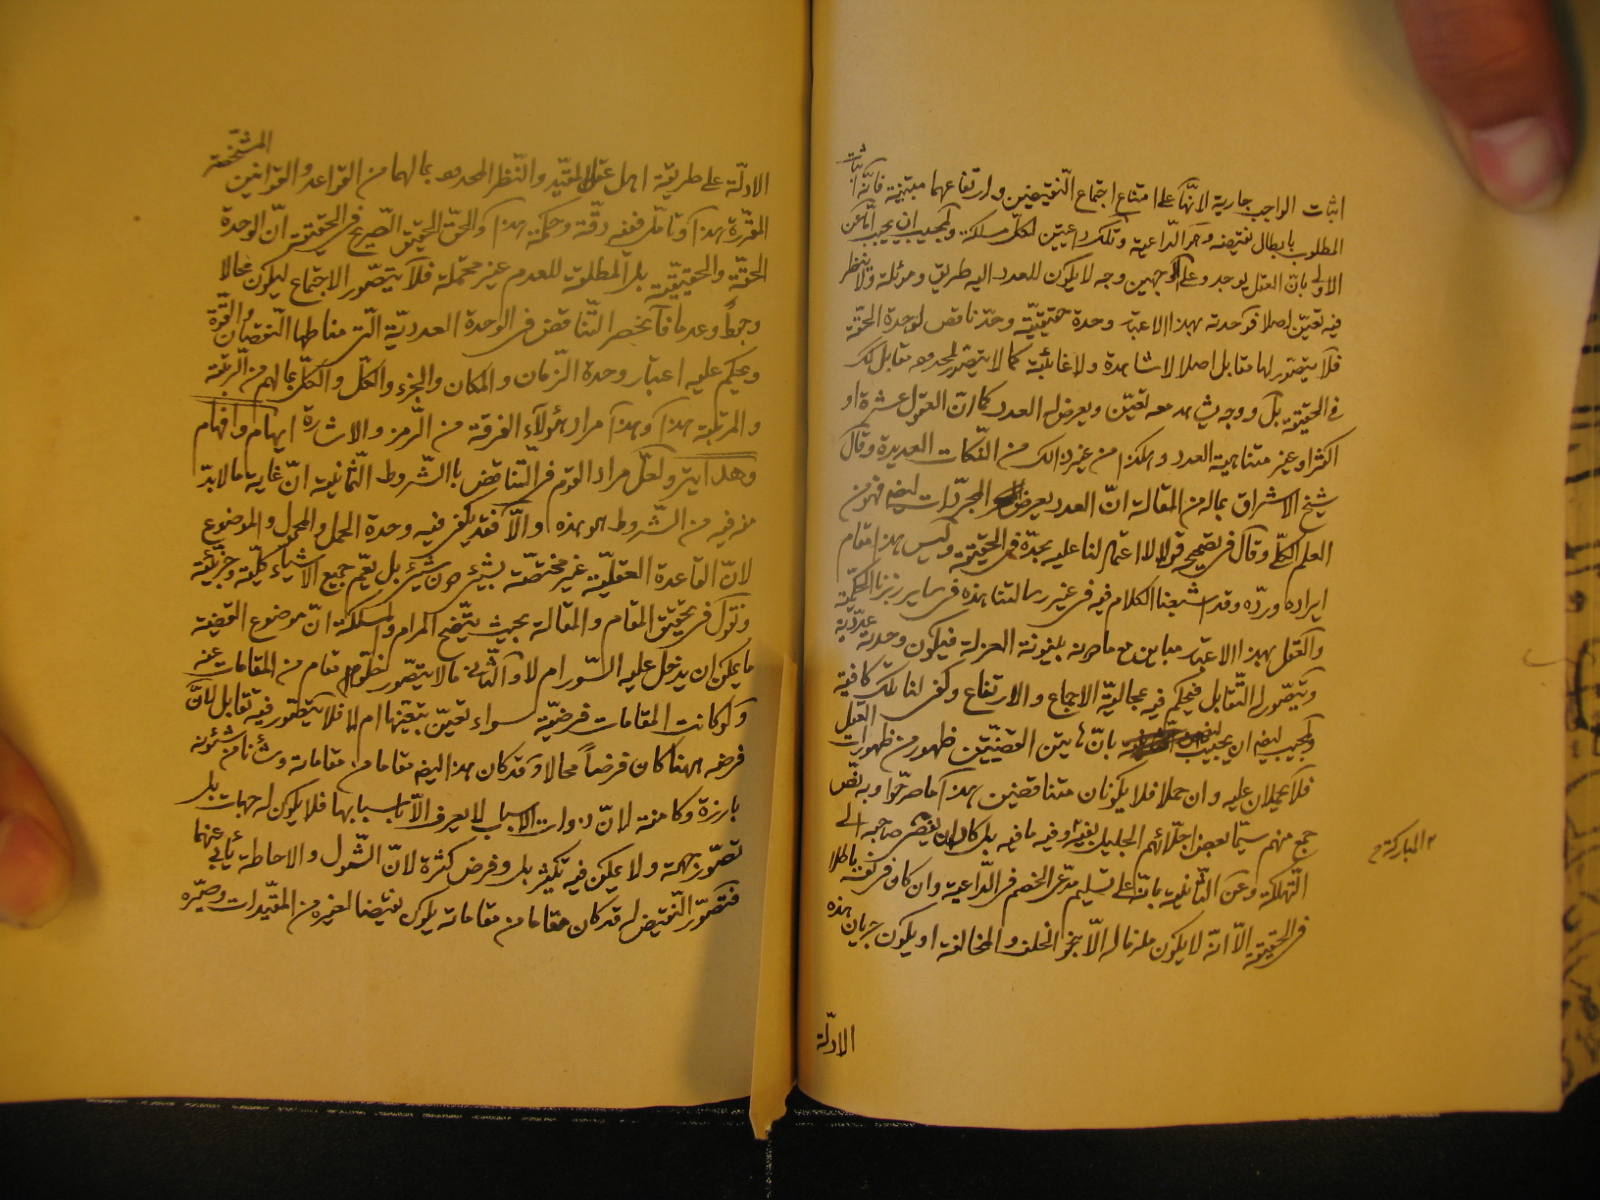 اثبات الواجب جارية لانّها على امتناع اجتماع النّقيضين وارتفاعهما مبتنية فانّه اثبات
المطلوب بابطال نقيضه وهو الدّاعية وتلك داعيتين لكلّ مسلكة والمجيب ان يجيب امّا عن
الاولى بانّ العقل يوجد وعلى الوجهين وجه لا يكون للعدد اليه طريق وموئلة ولا ينظر
فيه تعيّن اصلا فوحدته بهذا الاعتبار وحدة حقيقيّة وحدّ ناقص لوحدة الحقّة
فلا يتصوّر لها مقابل اصلا لا شاهدة ولا غائبة كما لا يتصوّر لمحدده مقابل لك
فى الحقيقة بل ووجه يشاهد معه تعيّن ويعرض له العدد كما انّ العقول عشرة او
اكثر او غير متناهية العدد وهكذا من غير ذالك من النّكات العديدة وقال
شيخ الاشراق بماله من المقالة انّ العدد يعرض المجرّدات ايضا فهو من
العلم الكلّى وقال فى تصحيحه قولا لا اعتمال لنا عليه بجدّه فى الحقيقة وليس هذا مقام
ايراده وردّه وقد اشبعنا الكلام فيه فى غير رسالتنا هذه فى ساير زبرنا الحكميّة
والعقل بهذا الاعتبار مباين مع ما دونه بينونة العزلة فيكون وحدته عدديّة
ويتصوّر له التّقابل فيحكم فيه بمحاليّة الاجماع والارتفاع وكفى لنا تلك كافية
والمجيب ايضا ان يجيب بانّ هاتين القضيّتين ظهور من ظهورات العقل
فلا يحملان عليه وان حملا فلا يكونان متناقضين هذا كما صرّحوا به بنصّ
جمع منهم سيّما بعض اجلّائهم الجليل بقيّة وفيه ما فيه بل كاد ان يفضى صاحبه الى
التّهلكة وعن الثّانية بانّه على تسليم مدّعى الخصم فى الدّاعية وان كان فى كونه باطلا
فى الحقيقة الّا انّه لا يكون ملزما له الّا بنحو الخلف والمخالفة او يكون جريان هذه
المباركة
الادلّة
الادلّة على طريقة اهل عقل المقيّد والنّظر المحدود بمالهما من القواعد والقوانين المشخّصة
المقرّرة هذا وتامّل ففيه دقّة وحكمة هذا والحقّ الحقيق الصّريح فى الحقيقة انّ الوحدة
الحقّة والحقيقيّة بل المطلوبة للعدم غير محتملة فلا يتصوّر الاجتماع ليكون محالا
وجمعا وعدما فانحصر التّناقض فى الوحدة العدديّة الّتى مناطها النّقصان والقوّة
ويحكم عليه اعتبار وحدة الزّمان والمكان والجزء والكلّ والكلّ بمالهم من الرّتبة
والمرتبة هذا وهذا مراد هؤلاء الفرقة من الرّمز والاشارة ابهام وافهام
وهداية ولعلّ مراد القوم فى التّناقض بالشّروط الثّمانية انّ غاية ما لابدّ
منه فيه من الشّروط هو هذه والّا فقد يكفى فيه وحدة الحمل والمحمول والموضوع
لانّ القاعدة العقليّة غير مختصّة بشيء دون شيء بل تعمّ جميع الاشياء كليّة وجزئيّة
ونقول فى تحقيق المقام والمقالة بحيث يتّضح المرام والمسلكة انّ موضوع القضيّة
ما يمكن ان يدخل عليه السّور ام لا والثّانى ما لا يتصوّر خلوّ مقام من المقامات عنه
ولو كانت المقامات فرضيّة سواء تعيّن بتعيّنها ام لا فلا يتصوّر فيه تقابل لانّ
فرضه ههنا كان فرضاً محالا وقد كان هذا ايضا مقاما من مقاماته وشأنا من شئونه
بارزة وكامنة لانّ ذوات الاسباب لا يعرف الّا باسبابها فلا يكون له جهات بل
تصوّر جهة ولا يمكن فيه تكثير بل وفرض كثرة لانّ الشّمول والاحاطة يأبى عنهما
فتصوّر النّقيض له قد كان مقاما من مقاماته يكون نقيضا لغيره من المقيّدات وصيّره